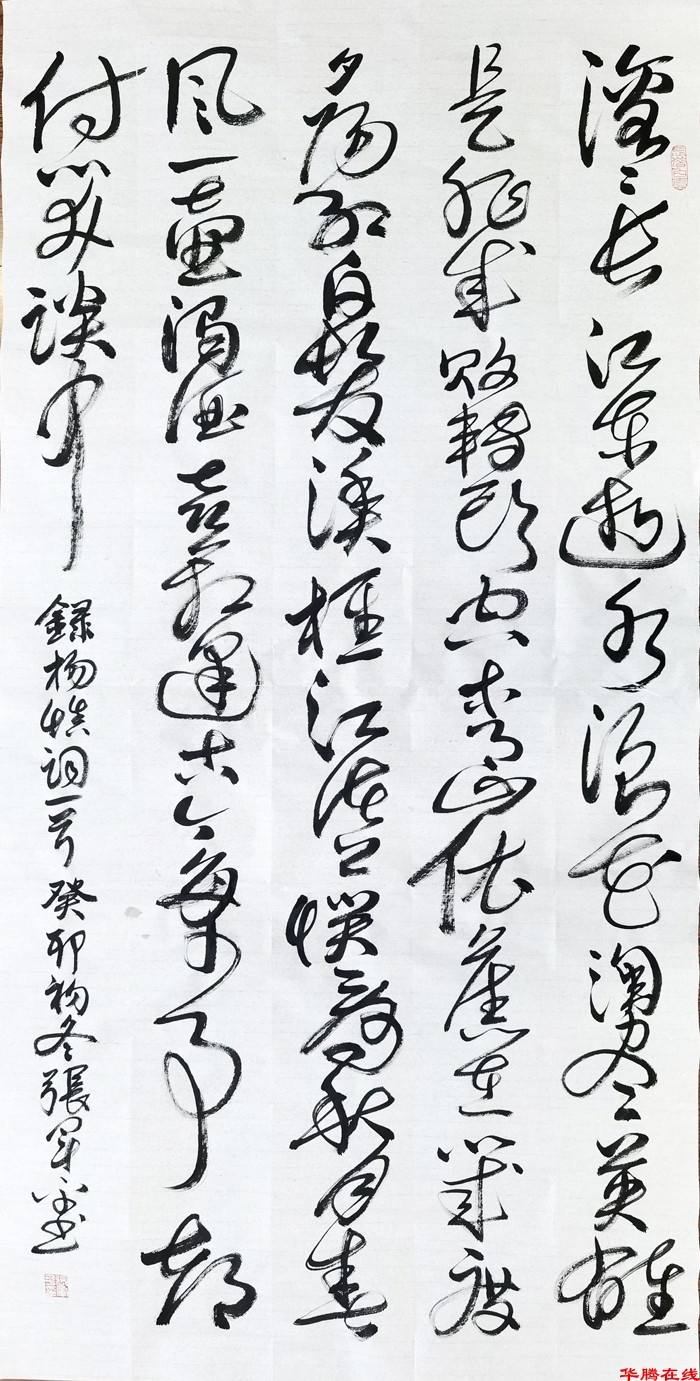 滚〻长江东逝水浪花淘尽英雄
是非成败转头空青山依舊在几度
夕阳红白髮渔樵江渚上惯看秋月春
风一壶浊酒喜相逢古今多少事都
付笑谈中
録杨慎词一首癸卯初冬張军书
华腾在线